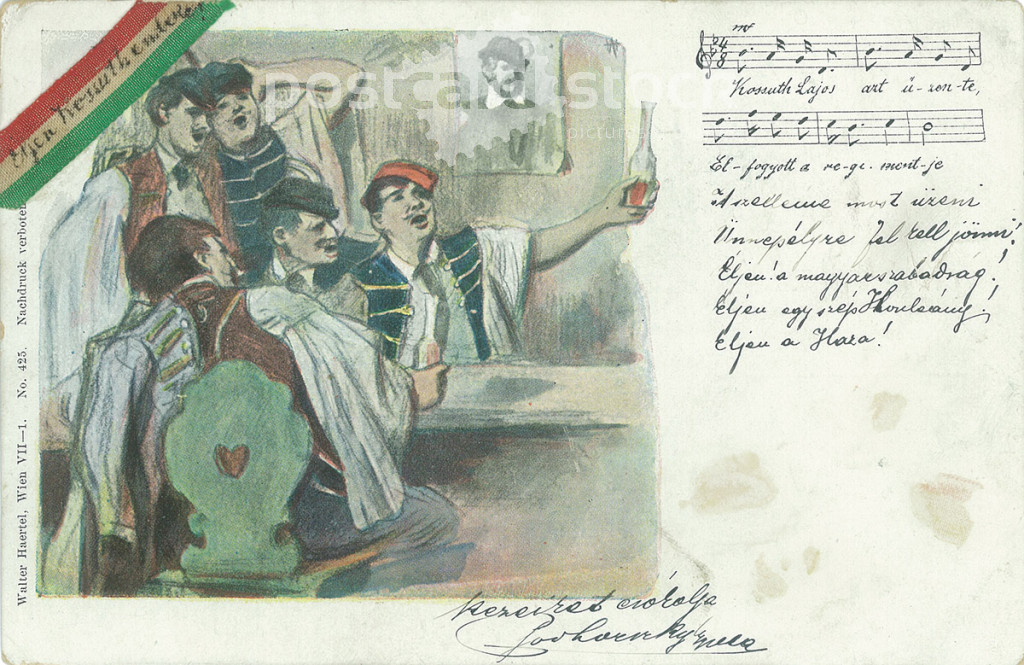 Éljen Kossuth
postcard.stock
picture
Kossuth Lajos azt ü-zen-te,
El-fogyott a re-gi-ment-je
A szelleme most üzeni
Ünnepélyre fel kell jönni!
Éljen a magyar szabadság!
Éljen egy szép
Éljen a Haza!
Walter Haertel, Wien VII—1. No. 425. Nachdruck verboten
Kezeiket csókolja